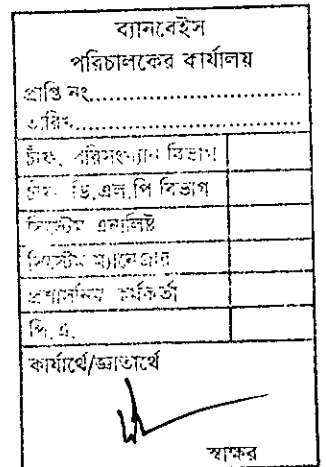 ব্যানবেইস
পরিচালকের কার্যালয়
প্রাপ্তি নং....................
তারিখ.....................
চীফ, পরিসংখ্যান বিভাগ
চীফ, ডি.এল.পি বিভাগ
সিস্টেম এনালিষ্ট
সিস্টেম ম্যানেজার
প্রশাসনিক কর্মকর্তা
পি.এ.
কার্যার্থে/জ্ঞাতার্থে
স্বাক্ষর